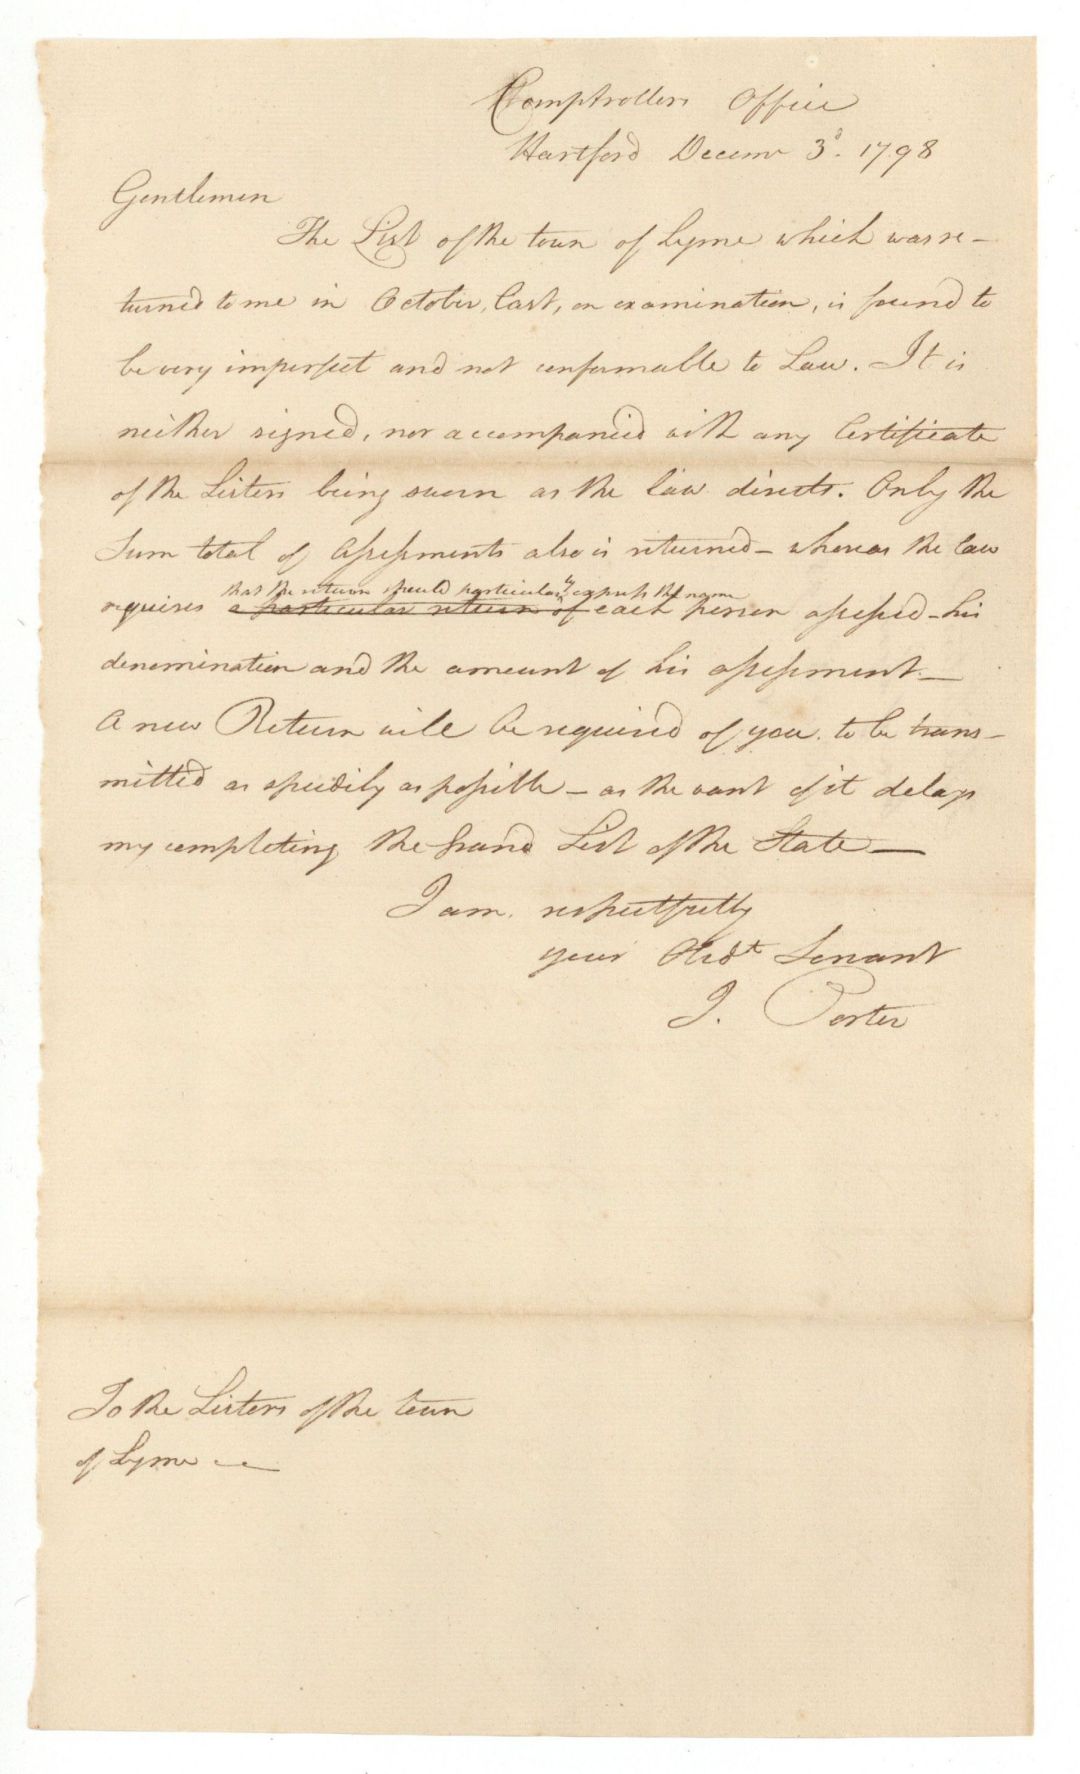 Comptrollers Office
Hartford Decemr 3d. 1798
Gentlemen
The List of the town of Lyme which was re-
turned to me in October, last, on examination, is found to
be very imperfect and not conformable to Law. It is
neither signed, nor accompanied with any Certificate
of the Listers being sworn as the law directs. Only the
Sum total of Assessments also is returned - whereas the law
that the return should particularly express the name
requires a particular return of each person assessed - his
denomination and the amount of his assessment. —
A new Return will be required of you. to be trans-
mitted as speedily as possible - as the want of it delays
my completing the Grand List of the State —
I am. respectfully
your Obdt Servant
J. Porter
To the Listers of the town
of Lyme —